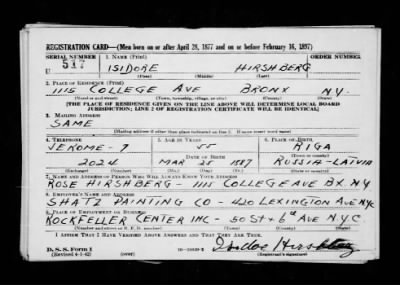 REGISTRATION CARD—(Men born on or after April 28, 1877 and on or before February 16, 1897)
SERIAL NUMBER 1. NAME (Print) ORDER NUMBER
U 517 ISIDORE HIRSHBERG
(First) (Middle) (Last)
2. PLACE OF RESIDENCE (Print)
1115 COLLEGE AVE BRONX N.Y.
(Number and street) (Town, township, village, or city) (County) (State)
[THE PLACE OF RESIDENCE GIVEN ON THE LINE ABOVE WILL DETERMINE LOCAL BOARD
JURISDICTION; LINE 2 OF REGISTRATION CERTIFICATE WILL BE IDENTICAL]
3. MAILING ADDRESS
SAME
(Mailing address if other than place indicated on line 2. If same insert word same)
4. TELEPHONE 5. AGE IN YEARS 6. PLACE OF BIRTH
JEROME-7 55 RIGA
DATE OF BIRTH (Town or county)
2024 MAR 25 1887 RUSSIA-LATVIA
(Exchange) (Number) (Mo.) (Day) (Yr.) (State or country)
7. NAME AND ADDRESS OF PERSON WHO WILL ALWAYS KNOW YOUR ADDRESS
ROSE HIRSHBERG - 1115 COLLEGE AVE BX. N.Y
8. EMPLOYER'S NAME AND ADDRESS
SHATZ PAINTING CO - 420 LEXINGTON AVE NYC
9. PLACE OF EMPLOYMENT OR BUSINESS
ROCKFELLER CENTER INC - 50 St + 6th AVE N.Y.C.
(Number and street or R. F. D. number) (Town) (County) (State)
I AFFIRM THAT I HAVE VERIFIED ABOVE ANSWERS AND THAT THEY ARE TRUE.
D. S. S. Form 1
(Revised 4-1-42) (over) Isidore Hirshberg
(Registrant's signature)